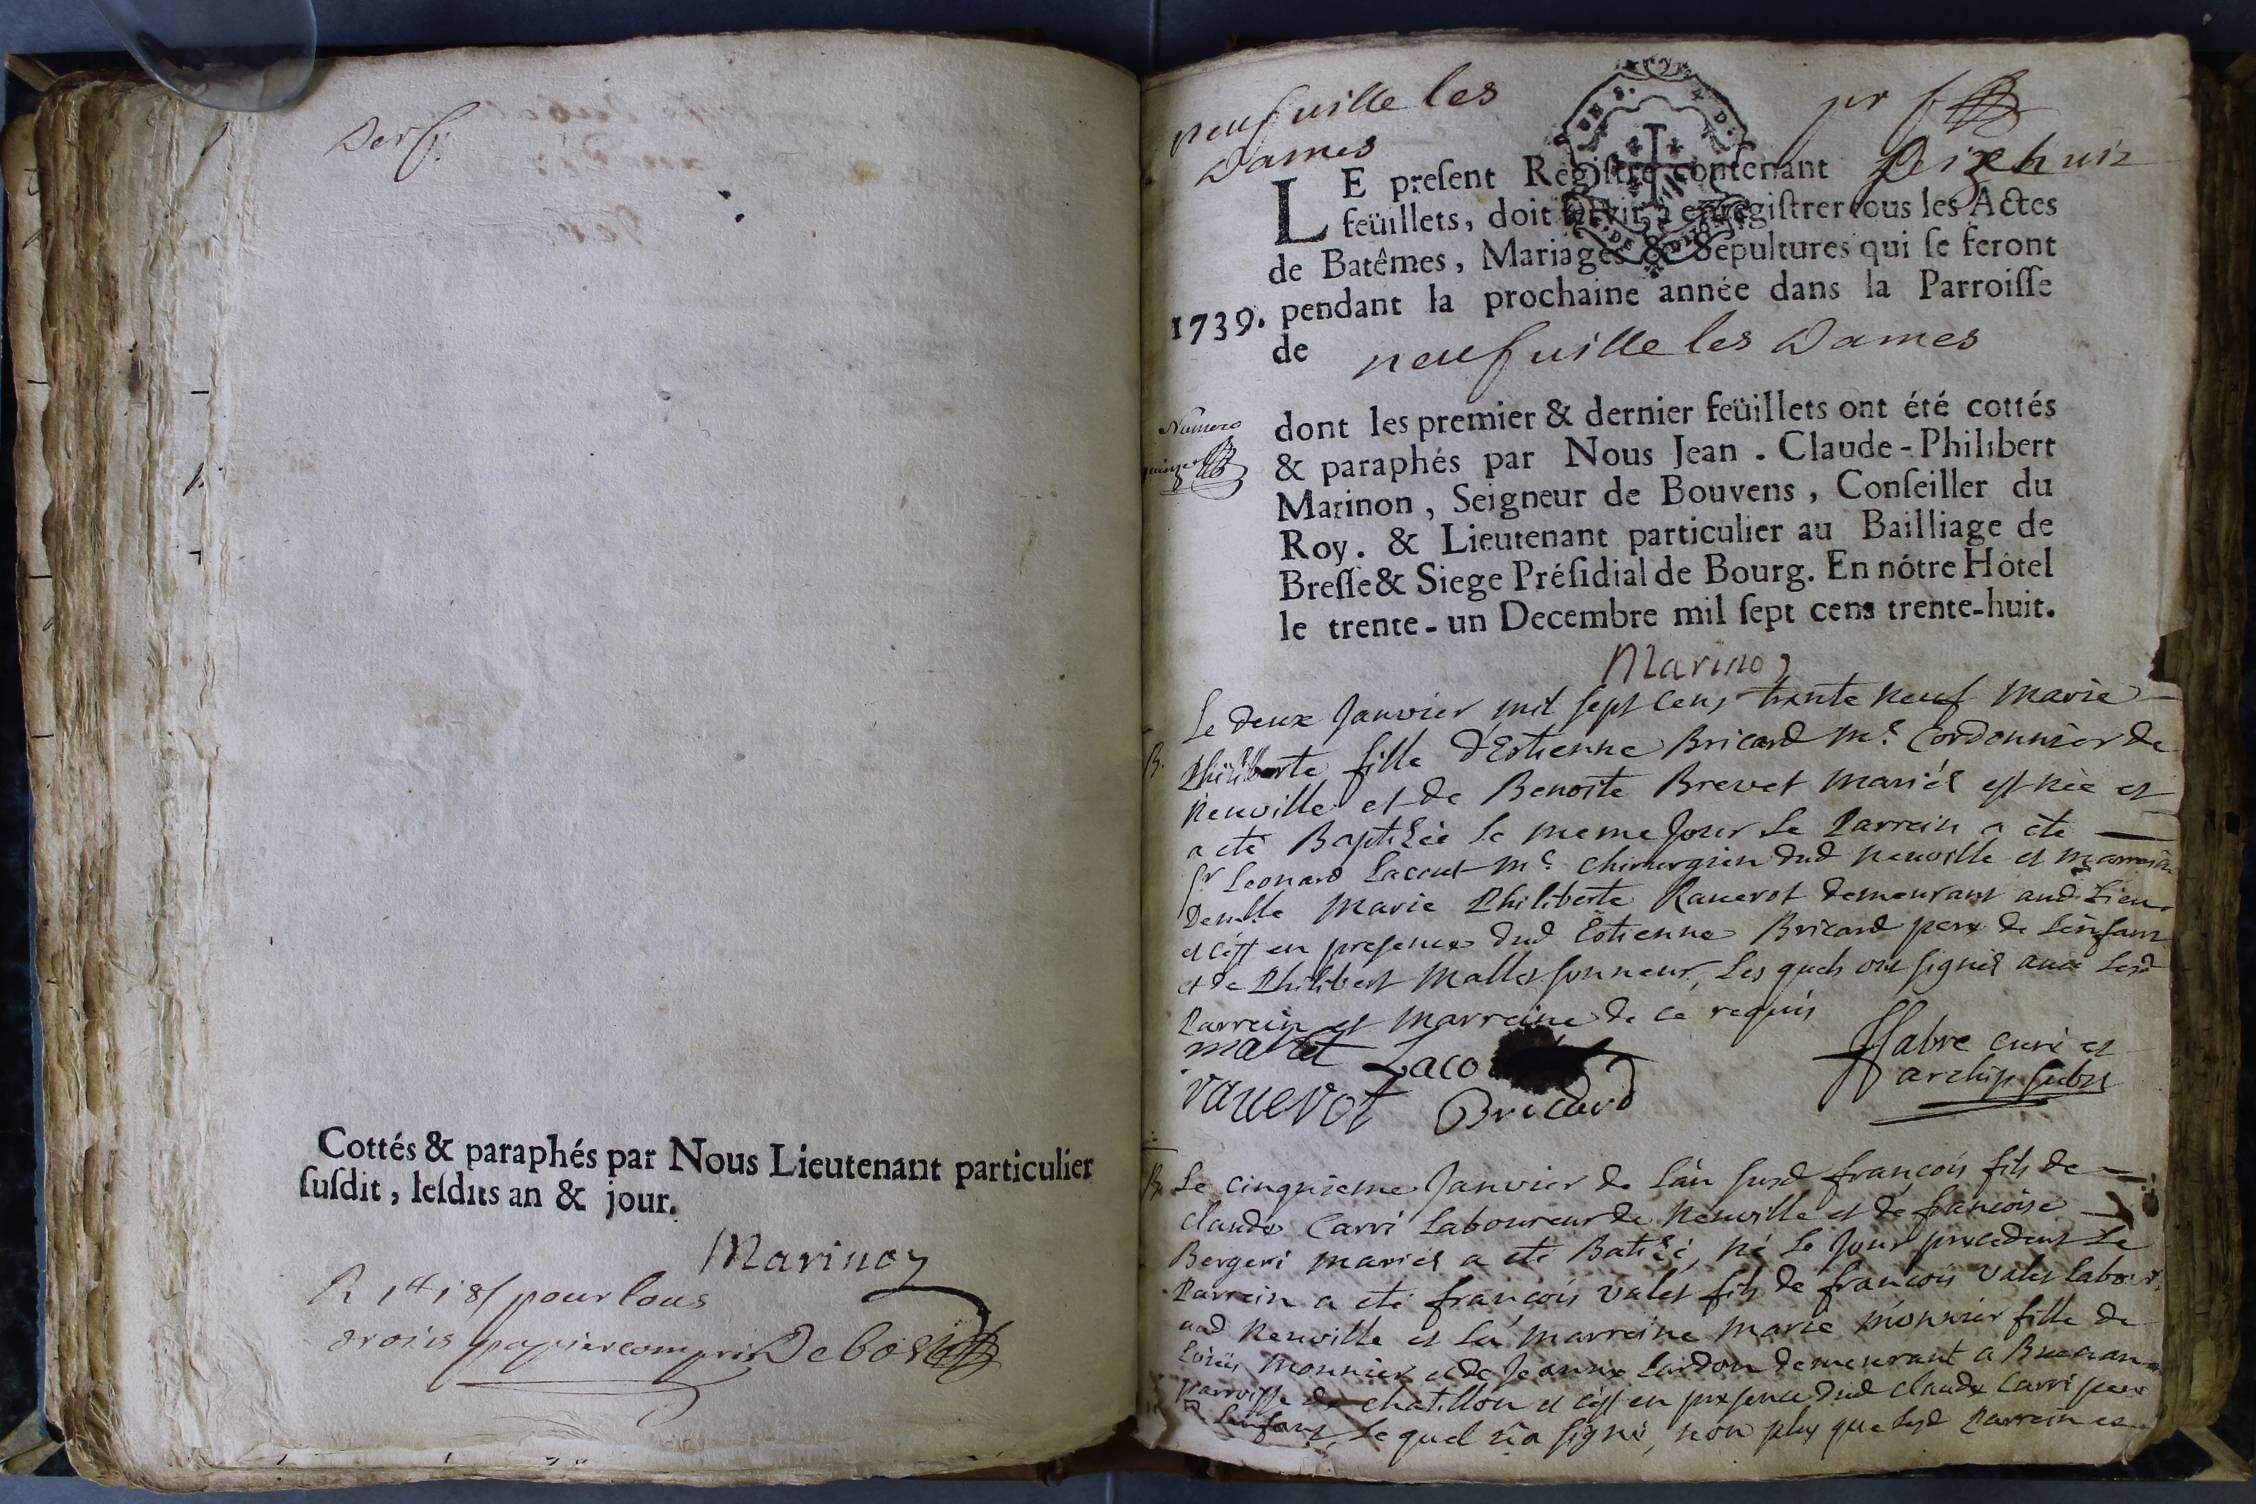 Der f.
Cottés & paraphés par Nous Lieutenant particulier
ſuſdit, leſdits an & jour.
Marinon
pour tous
droits papier compris Debost
neufuille les
Dames
pr f
LE preſent Regiſtre contenant Dixehuit
feüillets, doit ſervir à enregiſtrer tous les Actes
de Batêmes, Mariages & Sépultures qui ſe feront
1739. pendant la prochaine année dans la Parroiſſe
de neufuille les Dames
Numero
quinze
dont les premier & dernier feüillets ont été cottés
& paraphés par Nous Jean . Claude-Philibert
Marinon, Seigneur de Bouvens, Conſeiller du
Roy. & Lieutenant particulier au Bailliage de
Breſſe & Siege Préſidial de Bourg. En nôtre Hôtel
le trente-un Decembre mil ſept cens trente-huit.
Marinon
Le deux Janvier mil sept cens trente neuf Marie
B. Philiberte fille d'Estienne Bricard me. Cordonnier de
Neuville et de Benoîte Brevet mariés est née et
a eté Baptisée le meme Jour le Parrein a ete
Sr Leonard Lacout me. chirurgien dud Neuville et marreine
Demlle Marie Philiberte Raverot demeurant aud. Lieu
et c'est en presence dud Estienne Bricard pere de l'enfant
et de Philibert Mallet sonneur, Lesquels ont signés avec lesd
Parrein et marreine de ce requis
mallet Laco
raverot Bricard
ffabre curé et
archip
B. Le cinquieme Janvier de l'an susd françois fils de
Claude Carri Laboureur de Neuville et de françoise
Bergeri mariés a eté Batisé, né le Jour precedent Le
Parrein a eté françois Valet fils de françois Valet labour.
aud Neuville et la marreine Marie monnier fille de
Loüis Monnier et de Jeanne Lardon demeurant a
parroisse de chatillon et c'est en presence dud claude Carri pere
de l'enfant, Le quel n'a signé, non plus que lesd Parrein et